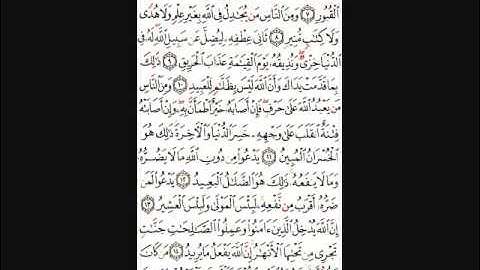 ٱلْقُبُورِ ٧ وَمِنَ ٱلنَّاسِ مَن يُجَٰدِلُ فِى ٱللَّهِ بِغَيْرِ عِلْمٍ وَلَا هُدًى
وَلَا كِتَٰبٍ مُّنِيرٍ ٨ ثَانِىَ عِطْفِهِۦ لِيُضِلَّ عَن سَبِيلِ ٱللَّهِ لَهُۥ فِى
ٱلدُّنْيَا خِزْىٌ وَنُذِيقُهُۥ يَوْمَ ٱلْقِيَٰمَةِ عَذَابَ ٱلْحَرِيقِ ٩ ذَٰلِكَ
بِمَا قَدَّمَتْ يَدَاكَ وَأَنَّ ٱللَّهَ لَيْسَ بِظَلَّٰمٍ لِّلْعَبِيدِ ١٠ وَمِنَ ٱلنَّاسِ
مَن يَعْبُدُ ٱللَّهَ عَلَىٰ حَرْفٍ فَإِنْ أَصَابَهُۥ خَيْرٌ ٱطْمَأَنَّ بِهِۦ وَإِنْ أَصَابَتْهُ
فِتْنَةٌ ٱنقَلَبَ عَلَىٰ وَجْهِهِۦ خَسِرَ ٱلدُّنْيَا وَٱلْأَخِرَةَ ذَٰلِكَ هُوَ
ٱلْخُسْرَانُ ٱلْمُبِينُ ١١ يَدْعُوا۟ مِن دُونِ ٱللَّهِ مَا لَا يَضُرُّهُۥ
وَمَا لَا يَنفَعُهُۥ ذَٰلِكَ هُوَ ٱلضَّلَٰلُ ٱلْبَعِيدُ ١٢ يَدْعُوا۟ لَمَن
ضَرُّهُۥٓ أَقْرَبُ مِن نَّفْعِهِۦ لَبِئْسَ ٱلْمَوْلَىٰ وَلَبِئْسَ ٱلْعَشِيرُ ١٣
إِنَّ ٱللَّهَ يُدْخِلُ ٱلَّذِينَ ءَامَنُوا۟ وَعَمِلُوا۟ ٱلصَّٰلِحَٰتِ جَنَّٰتٍ
تَجْرِى مِن تَحْتِهَا ٱلْأَنْهَٰرُ إِنَّ ٱللَّهَ يَفْعَلُ مَا يُرِيدُ ١٤ مَن كَانَ